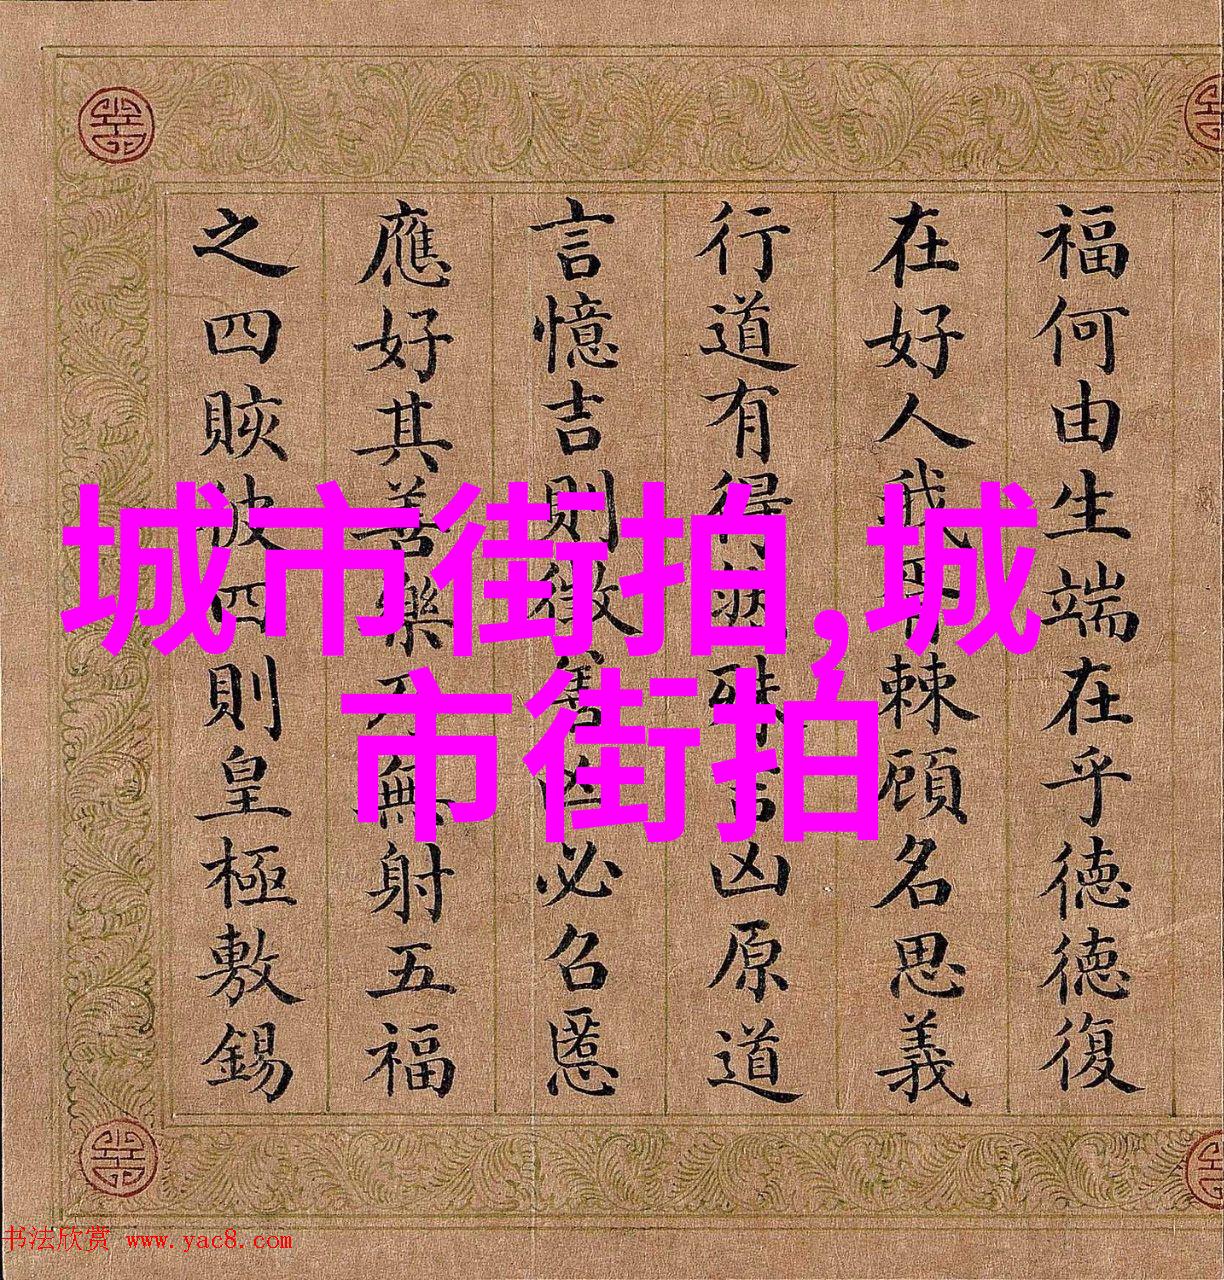 福何由生端在乎德德復
在好人我棘顧名思義
行道有得殊凶原道
言憶吉則徵凶必召慝
應好其善樂無射五福
之四賅彼四則皇極敷錫
城市街拍,城
市街拍
书法欣赏 www.yac8.com